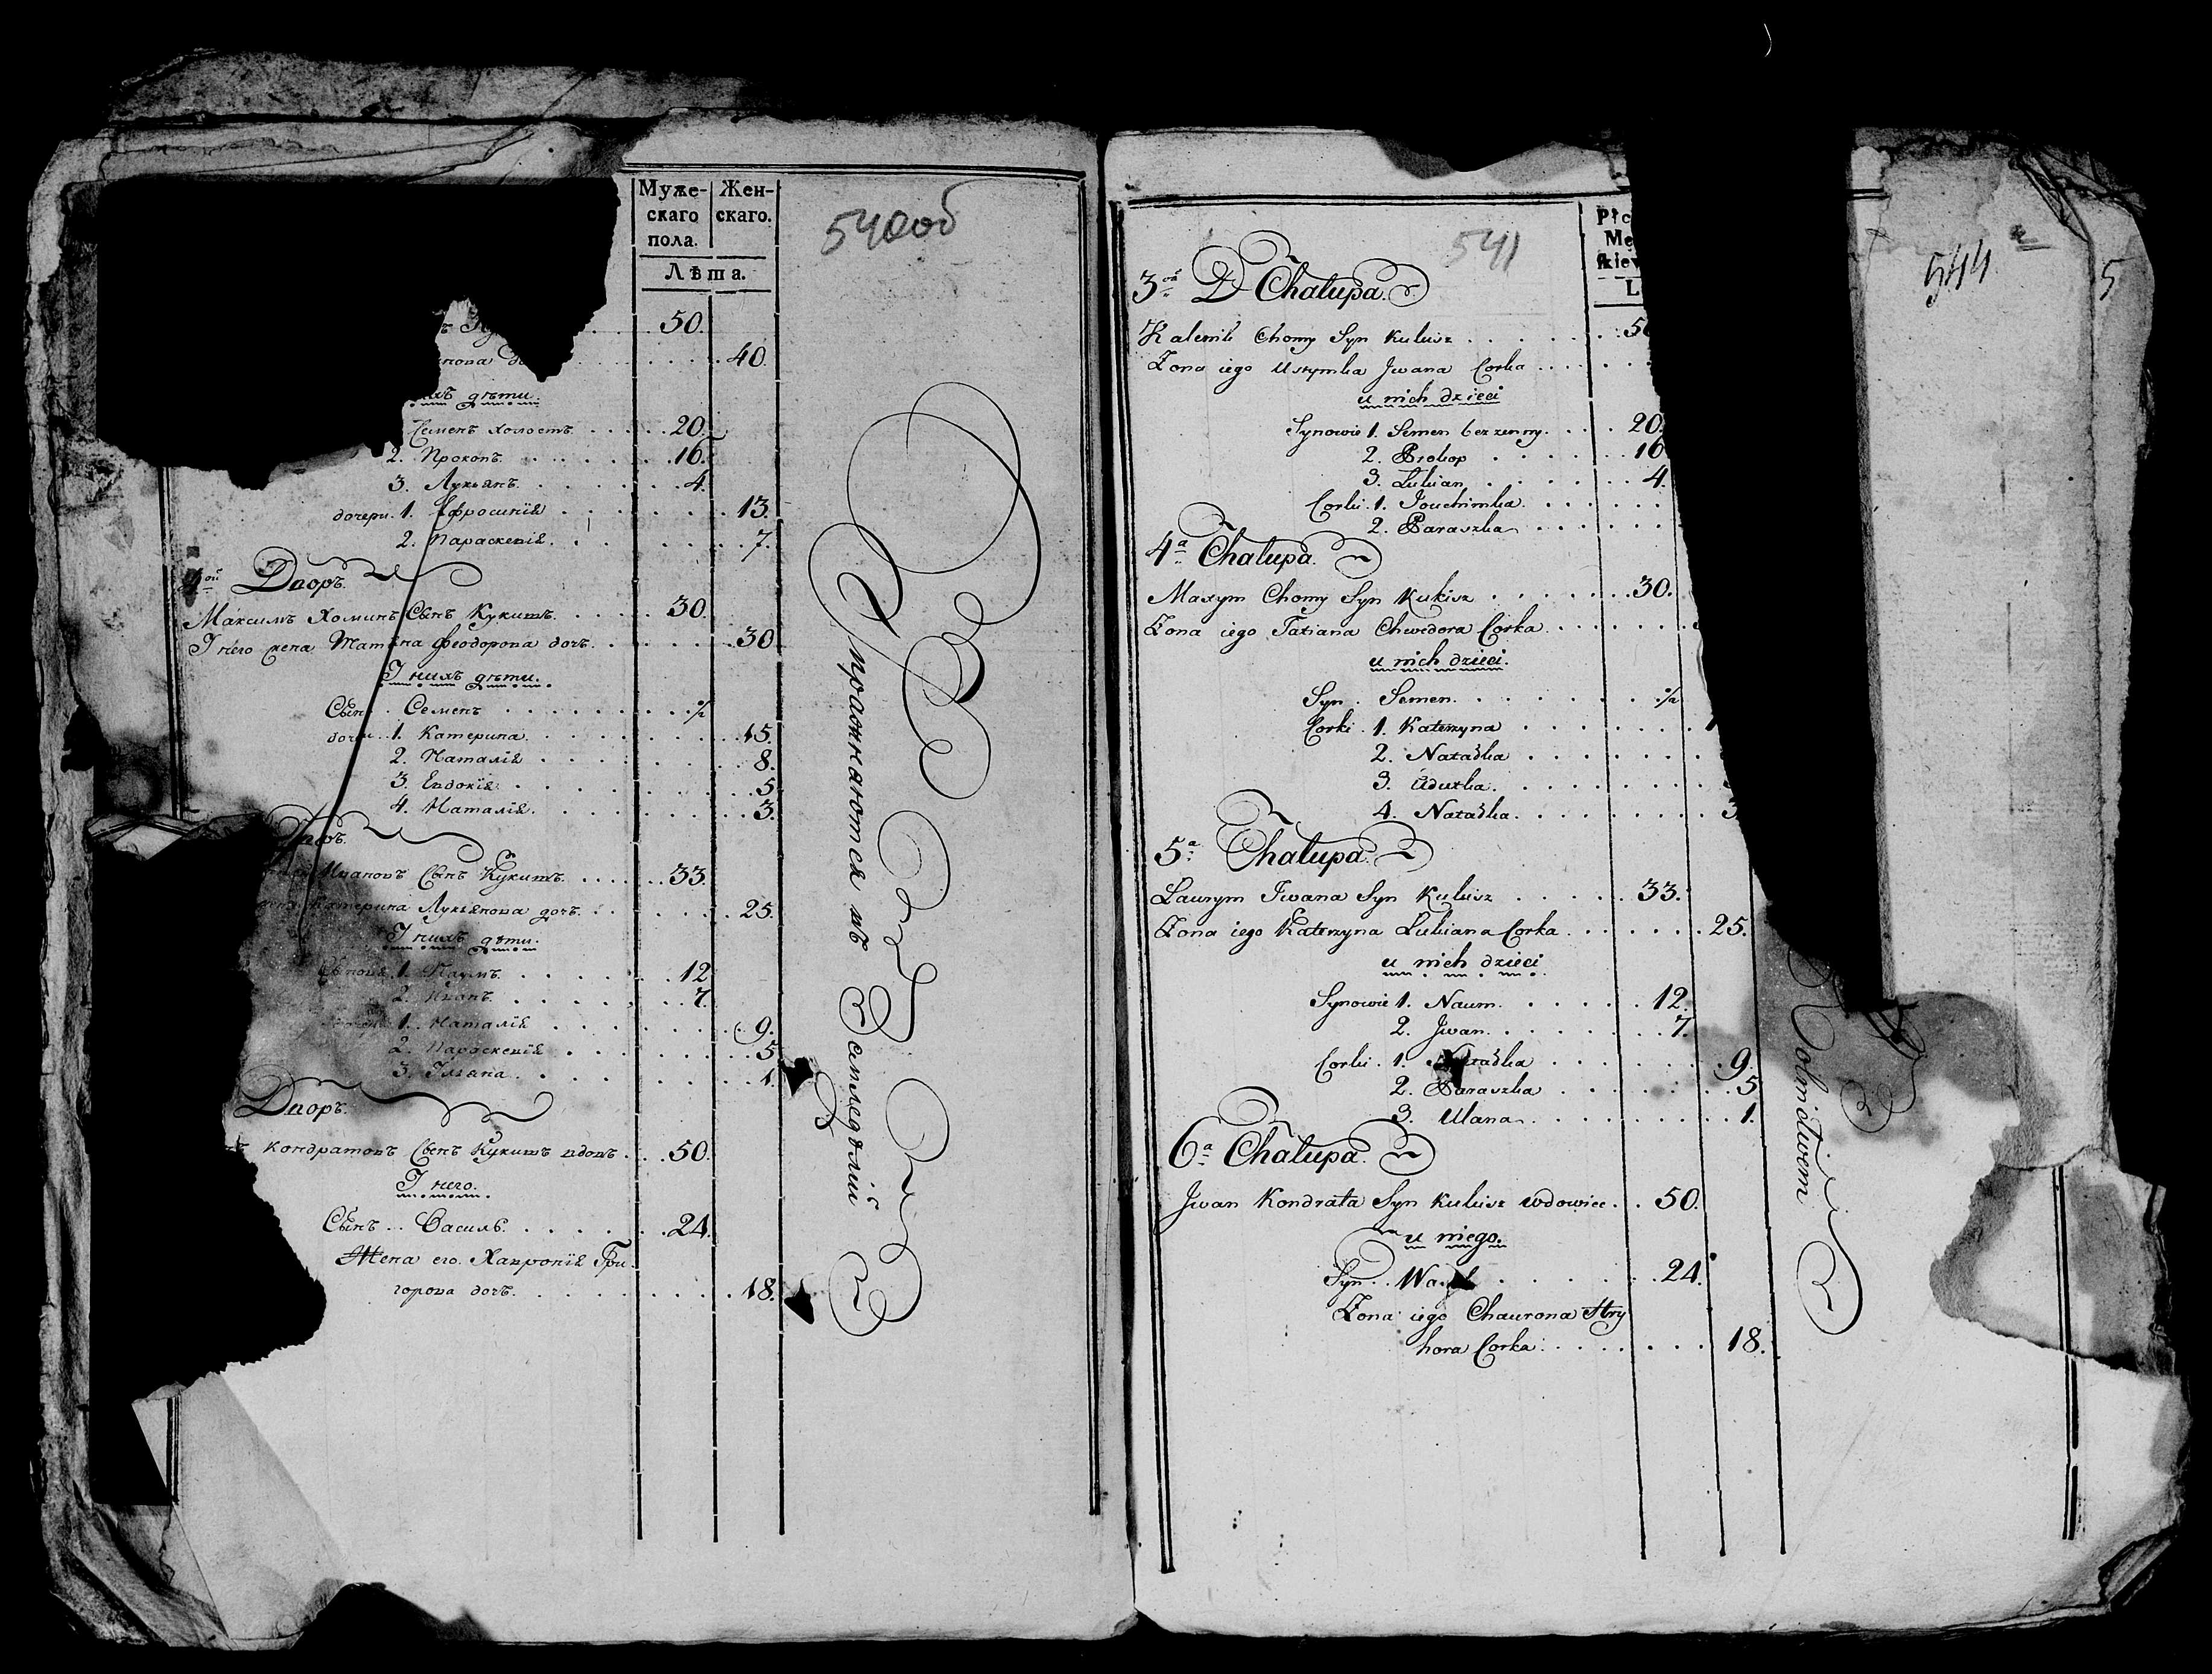 Муже-
скаго
пола.
Жен-
скаго.
Лѣта.
540об
50.
40.
дѣти.
Семенъ холостъ. 20.
2. Прокопъ. 16.
3. Лукьянъ. 4.
дочери. 1. Ефросинія 13.
2. Параскевія. 7.
4ой Дворъ.
Максимъ Хоминъ Сынъ Кукишъ. 30.
У него жена Татіана Феодорова дочь. 30
У нихъ дѣти.
Сынъ. Семенъ ½
дочери. 1. Катерина. 15.
2. Наталія 8.
3. Евдокія. 5
4. Наталія. 3.
Дворъ.
Ивановъ Сынъ Кукишъ. 33.
Катерина Лукьянова дочь. 25.
У нихъ дѣти.
Сыновья 1. Наумъ. 12
2. Иванъ. 7.
1. Наталія 9.
2. Параскевія 5
3. Ульяна. 1.
Дворъ.
Кондратовъ Сынъ Кукишъ вдовъ. 50.
У него.
Сынъ. Василь. 24.
Жена его. Хавронія Гри
горова дочь. 18.
Упражняются въ Земледѣліи
541
Płc
Mę
skiey
L
3оя D Chałupa.
Chomy Syn Kukisz 50
Zona iego Ustymka Jwana Corka
u nich dzieci
Synowie 1. Semen bezzenny. 20.
2. Prokop 16
3. Lukian 4.
Corki. 1. Jouchimka.
2. Paraszka
4a Chałupa.
Maxym Chomy Syn Kukisz 30.
Zona iego Tatiana Chwedora Corka.
u nich dzieci.
Syn. Semen. ½
Corki. 1. Katerzyna
2. Natalka
3. Udutka.
4. Natalka. 3
5a Chałupa.
Laurym Jwana Syn Kukisz 33.
Zona iego Katerzyna Lukiana Corka 25.
u nich dzieci.
Synowie 1. Naum. 12.
2. Jwan. 7.
Corki. 1. Natalka 9.
2. Paraszka 5
3. Ulana. 1.
6a Chałupa.
Jwan Kondrata Syn Kukisz wdowiec. 50.
u niego.
Syn. Wasil 24.
Zona iego Chaurona Hry
hora Corka. 18.
Rolnictwem
544
5